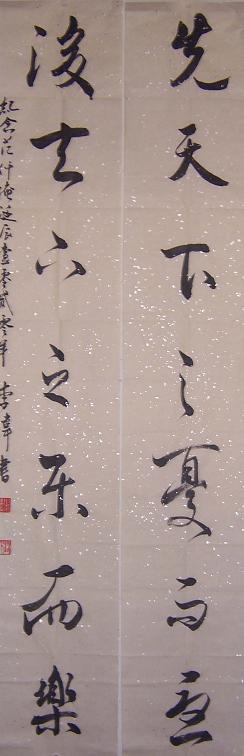 先天下之憂而憂
後天下之乐而樂
紀念范仲淹诞辰壹零贰零年 李 書